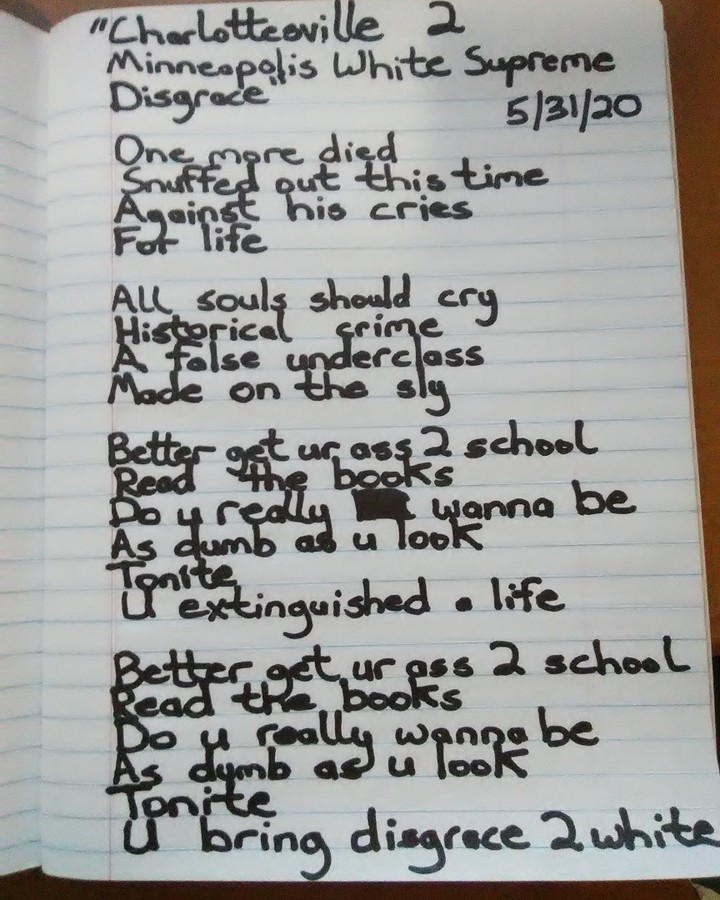 "Charlottesville 2
Minneapolis White Supreme
Disgrace"
5/31/20
One more died
Snuffed out this time
Against his cries
For life
All souls should cry
Historical crime
A false underclass
Made on the sly
Better get ur ass 2 school
Read the books
Do u really wanna be
As dumb as u look
Tonite
U extinguished a life
Better get ur ass 2 school
Read the books
Do u really wanna be
As dumb as u look
Tonite
U bring disgrace 2 white